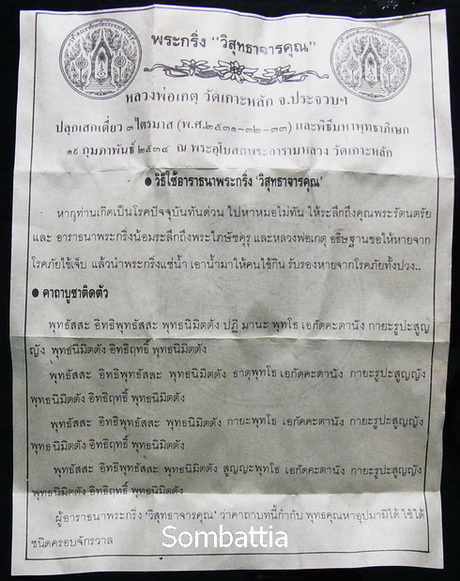 พระกริ่ง "วิสุทธาจารคุณ"
หลวงพ่อเกตุ วัดเกาะหลัก จ.ประจวบฯ
ปลุกเสกเดี่ยว ๓ ไตรมาส (พ.ศ.๒๕๓๑-๓๒-๓๓) และพิธีมหาพุทธาภิเษก
๑๙ กุมภาพันธ์ ๒๕๓๔ ณ พระอุโบสถพระอารามหลวง วัดเกาะหลัก
● วิธีใช้อาราธนาพระกริ่ง 'วิสุทธาจารคุณ'
หากท่านเกิดเป็นโรคปัจจุบันทันด่วน ไปหาหมอไม่ทัน ให้ระลึกถึงคุณพระรัตนตรัย
และ อาราธนาพระกริ่งน้อมระลึกถึงพระไภษัชคุรุ และหลวงพ่อเกตุ อธิษฐานขอให้หายจาก
โรคภัยไข้เจ็บ แล้วนำพระกริ่งแช่น้ำ เอาน้ำมาให้คนไข้กิน รับรองหายจากโรคภัยทั้งปวง..
● คาถาบูชาติดตัว
พุทธัสสะ อิทธิพุทธัสสะ พุทธนิมิตตัง ปฏิ มานะ พุทโธ เอกัคคะตานัง กายะรูปะสูญ
ญัง พุทธนิมิตตัง อิทธิฤทธิ์ พุทธนิมิตตัง
พุทธัสสะ อิทธิพุทธัสสะ พุทธนิมิตตัง ธาตุพุทโธ เอกัคคะตานัง กายะรูปะสูญญัง
พุทธนิมิตตัง อิทธิฤทธิ์ พุทธนิมิตตัง
พุทธัสสะ อิทธิพุทธัสสะ พุทธนิมิตตัง กายะพุทโธ เอกัคคะตานัง กายะรูปะสูญญัง
พุทธนิมิตตัง อิทธิฤทธิ์ พุทธนิมิตตัง
พุทธัสสะ อิทธิพุทธัสสะ พุทธนิมิตตัง สูญญะพุทโธ เอกัคคะตานัง กายะรูปะสูญญัง
พุทธนิมิตตัง อิทธิฤทธิ์ พุทธนิมิตตัง
ผู้อาราธนาพระกริ่ง 'วิสุทธาจารคุณ' ว่าคาถาบทนี้กำกับ พุทธคุณหาอุปมามิได้ ใช้ได้
ชนิดครอบจักรวาล
Sombattia